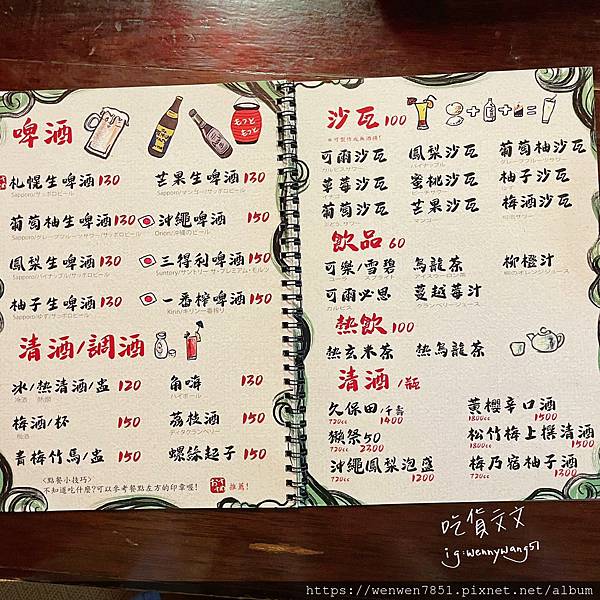 啤酒
札幌生啤酒 130
Sapporo/サッポロビール
芒果生啤酒 130
Sapporo/マンゴー/サッポロビール
葡萄柚生啤酒 130
Sapporo/グレープフルーツサワー/サッポロビール
沖繩啤酒 150
Orion/沖縄のビール
鳳梨生啤酒 130
Sapporo/パイナップル/サッポロビール
三得利啤酒 150
Suntory/サントリー ザ・プレミアム・モルツ
柚子生啤酒 130
Sapporo/ゆず/サッポロビール
一番榨啤酒 150
Kirin/キリン一番搾り
清酒/調酒
冰/熱清酒/盅 120
冷酒 熱燗
角嗨 130
ハイボール
梅酒/杯 150
梅酒
荔枝酒 150
ディタクランベリー
青梅竹馬/盅 150
螺絲起子 150
<點餐小技巧>
不知道吃什麼?可以參考餐點左方的印章喔!
推薦!
沙瓦 100
*可製作成無酒精!
可爾沙瓦
カルピスサワー
鳳梨沙瓦
パイナップル
葡萄柚沙瓦
グレープフルーツサワー
草莓沙瓦
蜜桃沙瓦
ピーチサワー
柚子沙瓦
葡萄沙瓦
芒果沙瓦
マンゴー
梅酒沙瓦
梅酒サワー
飲品 60
可樂/雪碧
烏龍茶
アイスウーロン茶
柳橙汁
オレンジジュース
可爾必思
カルピス
蔓越莓汁
クランベリージュース
熱飲 100
熱玄米茶
熱烏龍茶
清酒/瓶
久保田/千壽
720cc 1400
黃櫻辛口酒
1800cc 1500
獺祭50
720cc 2300
松竹梅上撰清酒
1800cc 1500
沖繩鳳梨泡盛
720cc 1200
梅乃宿柚子酒
720cc 1300
吃貨文文
ig:wennywang51
https://wenwen7851.pixnet.net/album